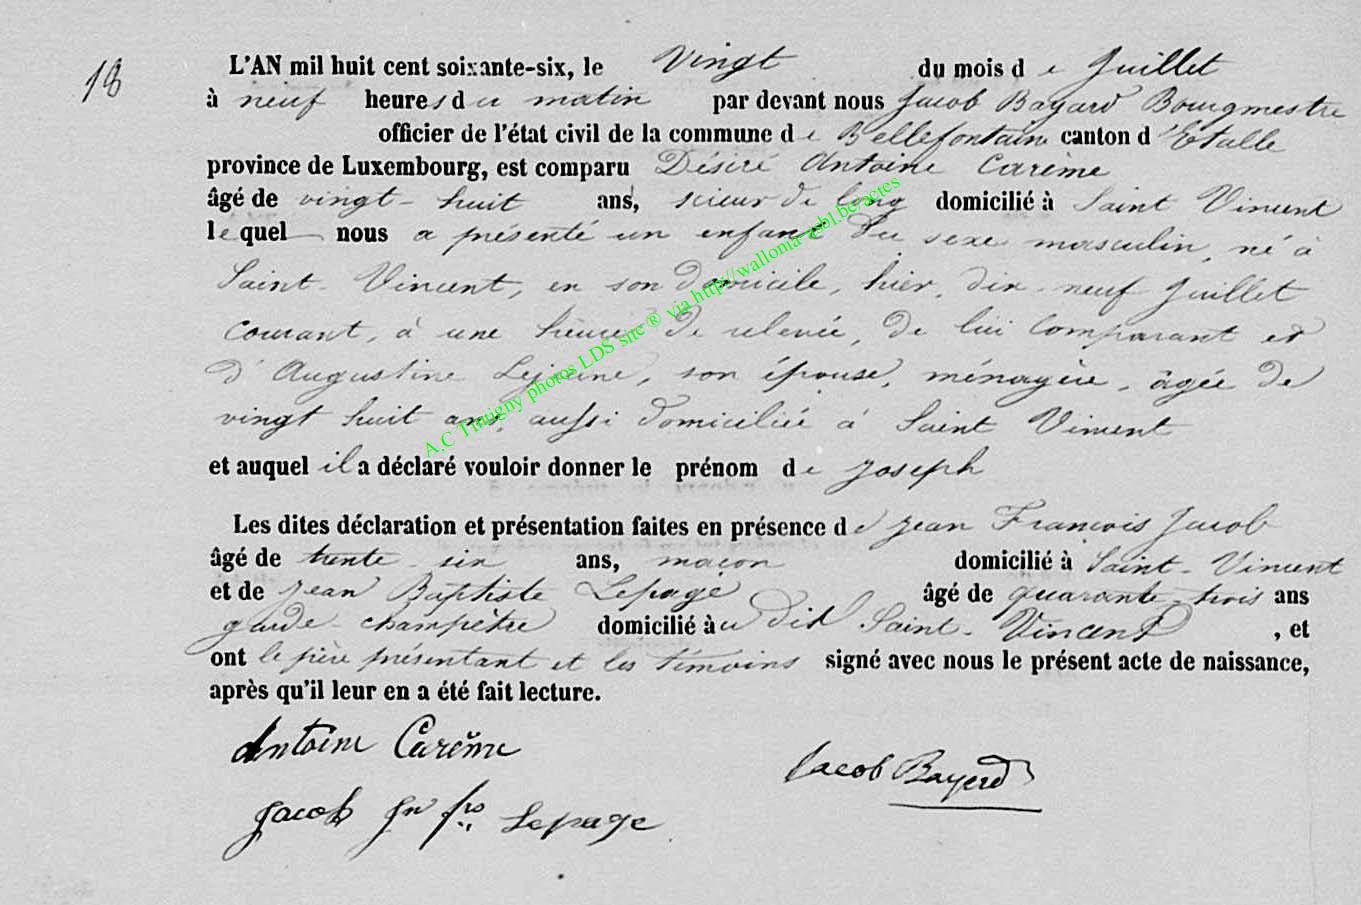 18
L'AN mil huit cent soixante-six, le Vingt du mois de Juillet
à neuf heures du matin par devant nous Jacob Bayard Bourgmestre
officier de l'état civil de la commune de Bellefontaine canton d'Etalle
province de Luxembourg, est comparu Désiré Antoine Carême
âgé de vingt-huit ans, scieur de long domicilié à Saint Vincent
lequel nous a présenté un enfant du sexe masculin, né à
Saint-Vincent, en son domicile, hier, dix-neuf Juillet
courant, à une heure de relevée, de lui comparant et
d'Augustine Lejeune, son épouse, ménagère, âgée de
vingt huit ans, aussi domiciliée à Saint Vincent
et auquel il a déclaré vouloir donner le prénom de Joseph
Les dites déclaration et présentation faites en présence de Jean François Jacob
âgé de trente-six ans, maçon domicilié à Saint-Vincent
et de Jean Baptiste Lepage âgé de quarante-trois ans
garde-champêtre domicilié au dit Saint-Vincent, et
ont le père présentant et les témoins signé avec nous le présent acte de naissance,
après qu'il leur en a été fait lecture.
Antoine Carême
Jacob Bayard
Jacob Jn frs Lepage
A.C Tintigny photos LDS site ® via http//wallonia-asbl.be/actes